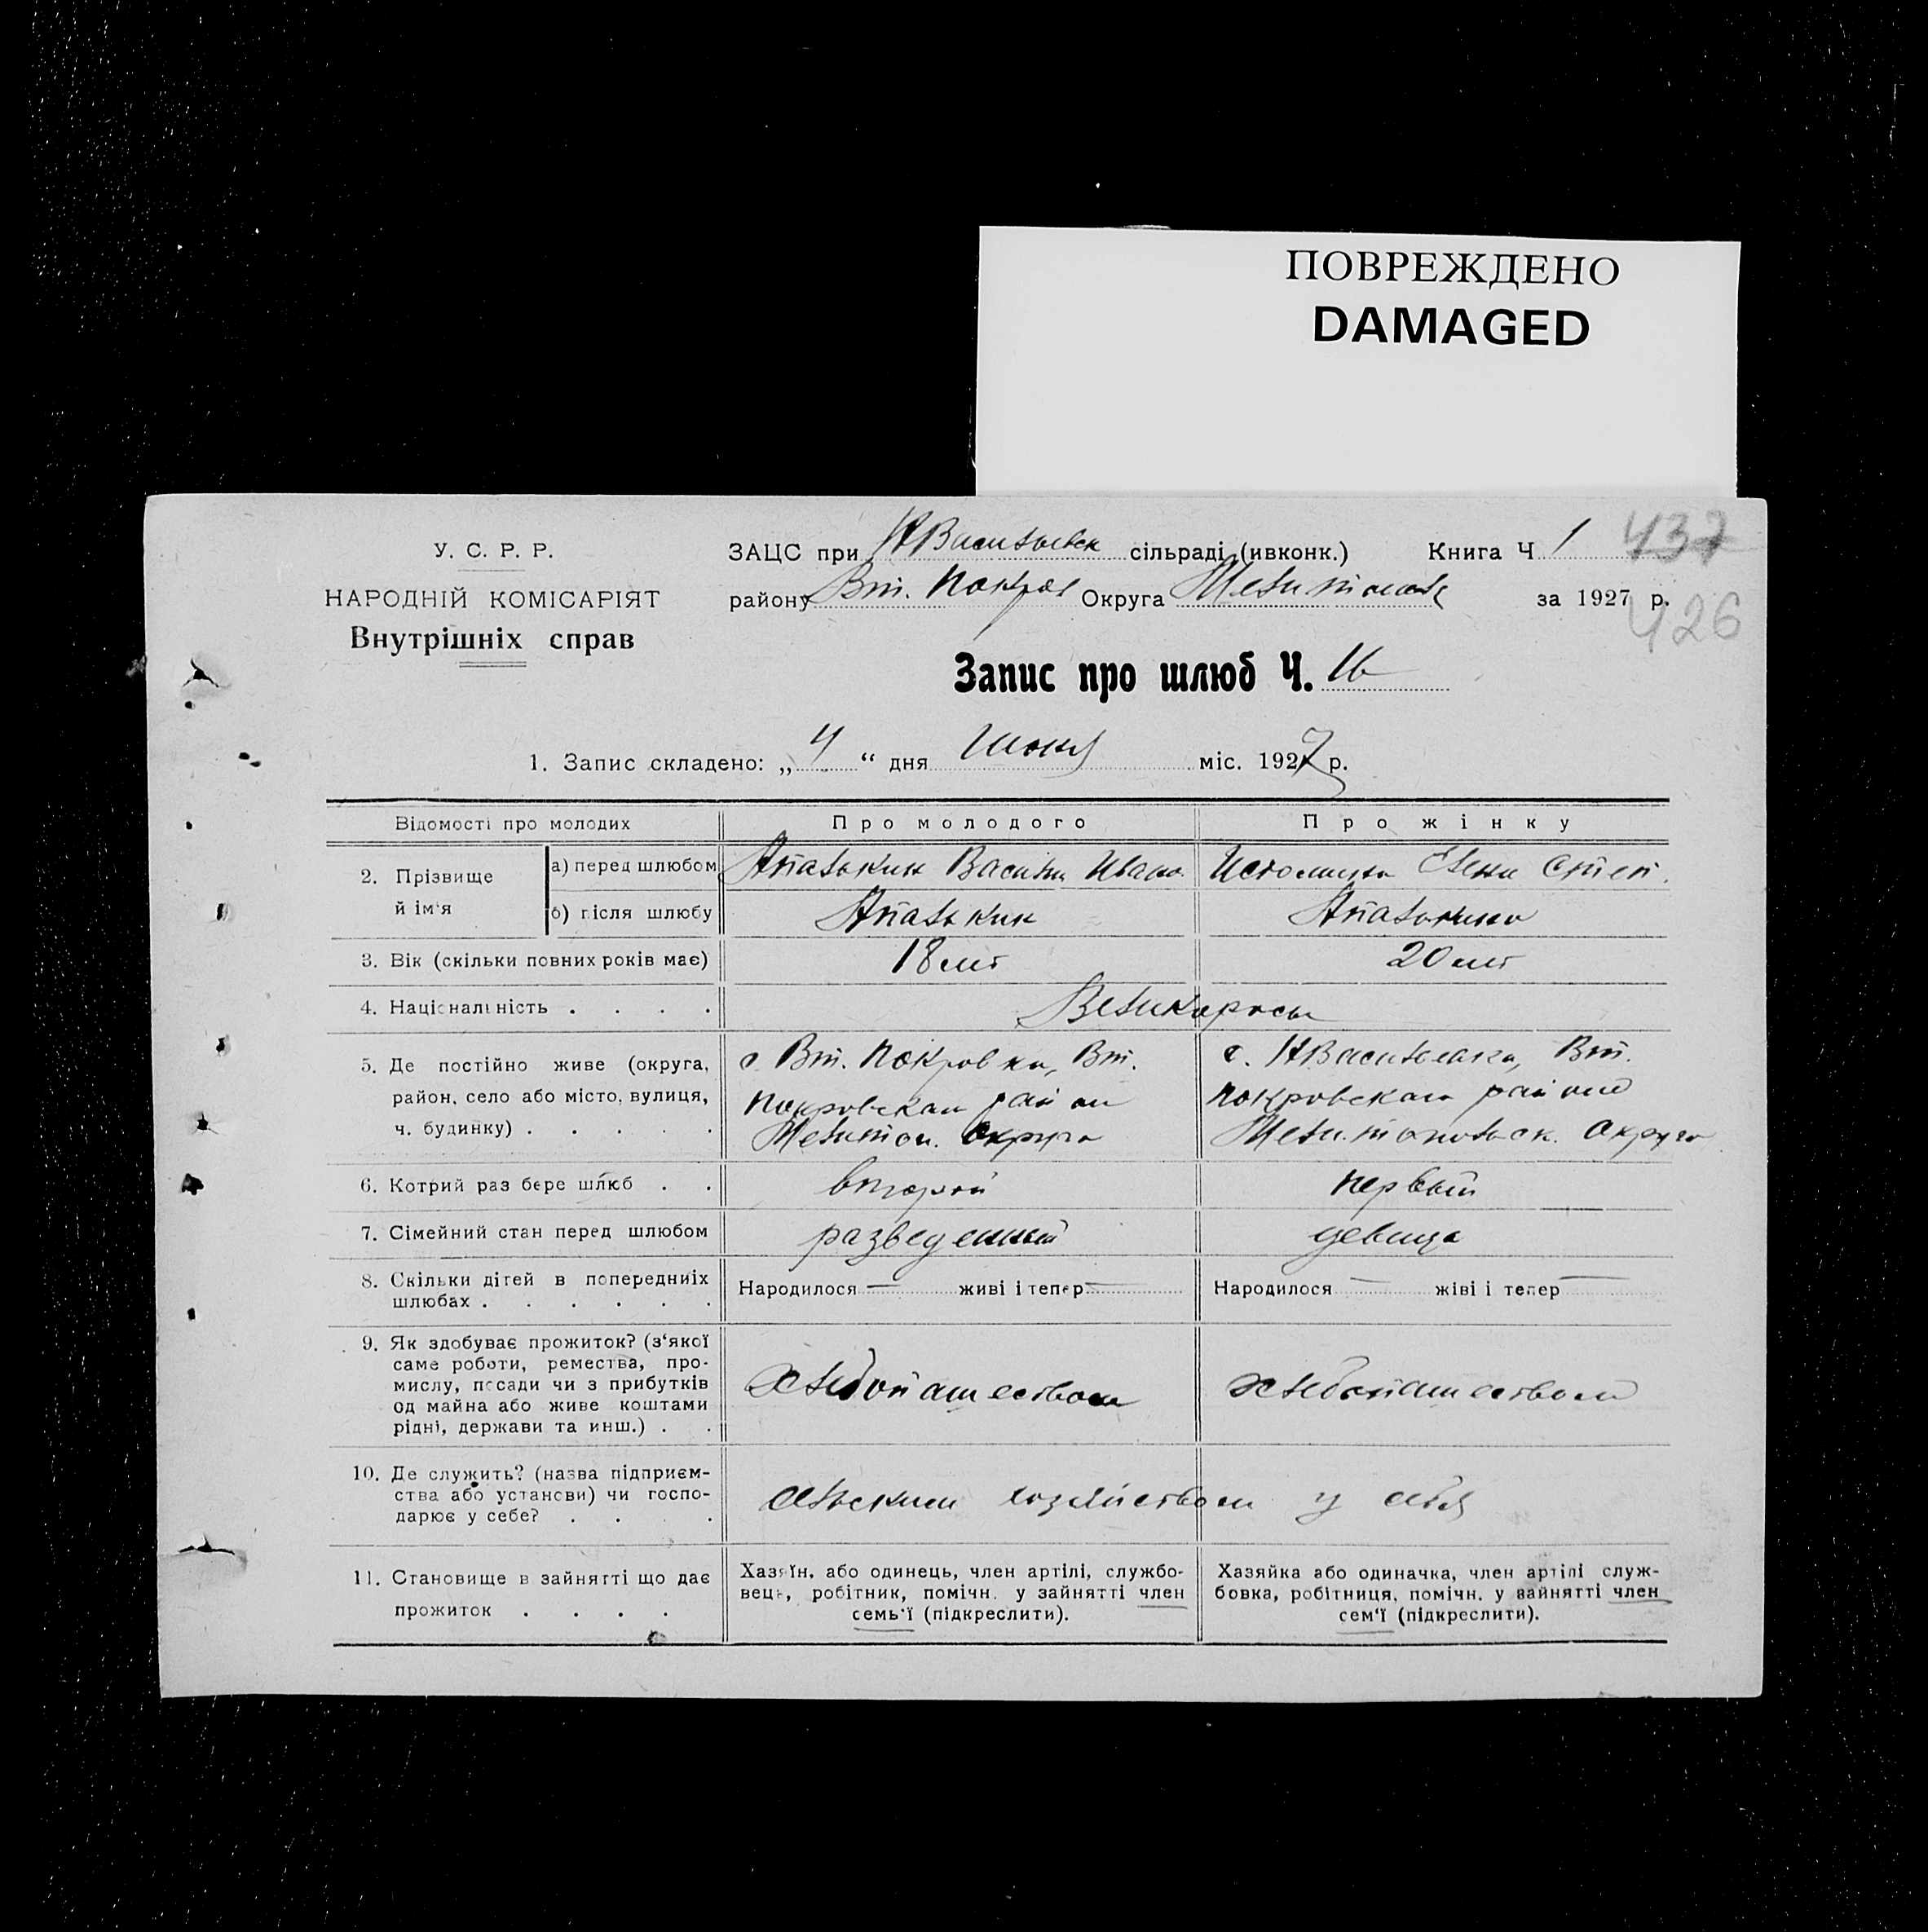 ПОВРЕЖДЕНО
DAMAGED
У. С. Р. Р.
НАРОДНІЙ КОМІСАРІЯТ
Внутрішніх справ
ЗАЦС при НВасильевск сільраді (ивконк.) Книга Ч 1 437
району Вт. Покров Округа за 1927 р.
426
Запис про шлюб Ч. 16
1. Запис складено: „4“ дня міс. 1927 р.
Відомості про молодих Про молодого Про жінку
2. Прізвище й ім'я
а) перед шлюбом Апалькин Васили Ивано. Истомина Елена Степ.
б) після шлюбу Апалькин Апалькина
3. Вік (скільки повних років має) 18 лет 20 лет
4. Національність . . . . Великоросы
5. Де постійно живе (округа, с. Вт. Покровка, Вт. с. НВасильевка, Вт.
район, село або місто, вулиця, Покровскаи район Покровскаго района
ч. будинку) . . . . . Мелитоп. Округа Округа
6. Котрий раз бере шлюб . . второй первый
7. Сімейний стан перед шлюбом разведенный девица
8. Скільки дітей в попередниіх Народилося — живі і тепер — Народилося — жіві і тепер —
шлюбах . . . . . .
9. Як здобуває прожиток? (з'якої
саме роботи, ремества, про-
мислу, посади чи з прибутків хлебопашеством хлебопашеством
од майна або живе коштами
рідні, держави та инш.) . .
10. Де служить? (назва підприєм-
ства або установи) чи госпо- сельским хозяйством у себя
дарює у себе? . . . .
11. Становище в зайнятті що дає Хазяїн, або одинець, член артілі, службо- Хазяйка або одиначка, член артілі служ-
прожиток . . . . вець, робітник, помічн. у зайнятті член бовка, робітниця, помічн. у вайнятті член
семь'ї (підкреслити). сем'ї (підкреслити).